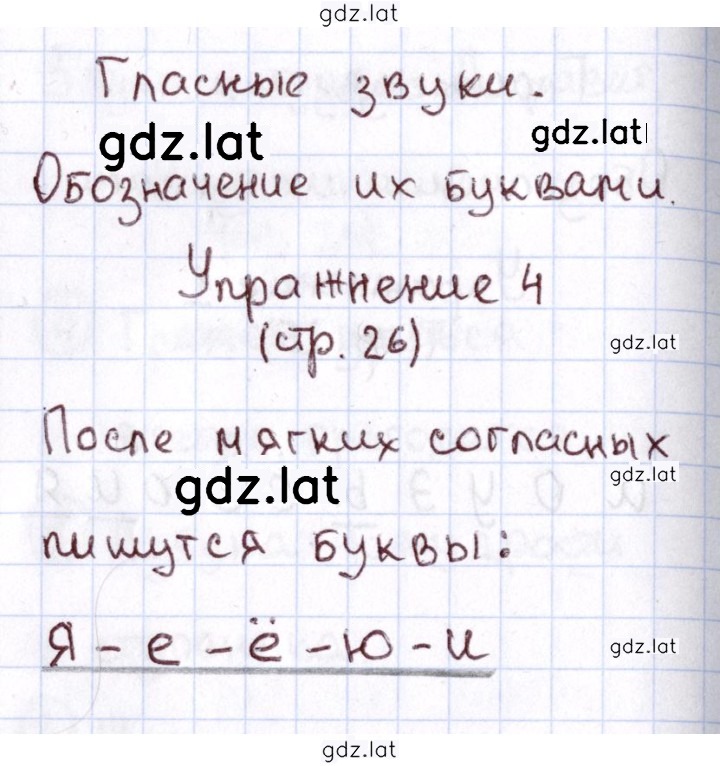 gdz.lat
Гласные звуки.
gdz.lat gdz.lat
Обозначение их буквами.
Упражнение 4
(стр. 26)
gdz.lat
После мягких согласных
gdz.lat gdz.lat
пишутся буквы:
Я - е - ё - ю - и
gdz.lat
gdz.lat